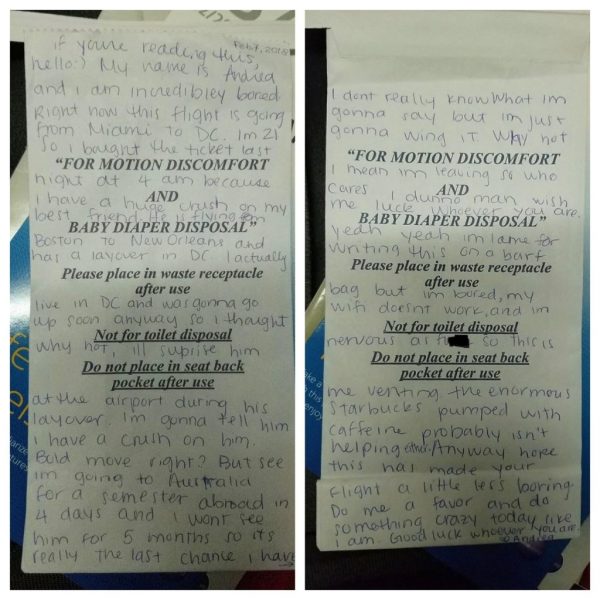 if youre reading this,
Feb 7, 2018
hello:) My name is Andrea
and i am incredibley bored
Right now this flight is going
from Miami to DC. Im 21
so i bought the ticket last
"FOR MOTION DISCOMFORT
night at 4 am because
AND
i have a huge crush on my
best friend. He is flying from
BABY DIAPER DISPOSAL"
Boston to New Orleans and
has a layover in DC. I actually
Please place in waste receptacle
after use
live in DC and was gonna go
up soon anyway so i thought
Not for toilet disposal
why not, ill suprise him
Do not place in seat back
pocket after use
at the airport during his
layover. Im gonna tell him
i have a crush on him.
Bold move right? But see
im going to Australia
for a semester abroad in
4 days and i wont see
him for 5 months so its
really the last chance i have
I dont really know what im
gonna say but im just
gonna wing it. Why not
"FOR MOTION DISCOMFORT
I mean im leaving so who
cares I dunno man, wish
AND
me luck whoever you are.
BABY DIAPER DISPOSAL"
yeah yeah im lame for
writing this on a barf
Please place in waste receptacle
after use
bag but im bored, my
wifi doesnt work, and im
Not for toilet disposal
nervous as so this is
Do not place in seat back
pocket after use
me venting. the enormous
Starbucks pumped with
caffeine probably isn't
helping either. Anyway hope
this has made your
flight a little less booring.
Do me a favor and do
something crazy today like
i am. Good luck whoever you are.
Andrea